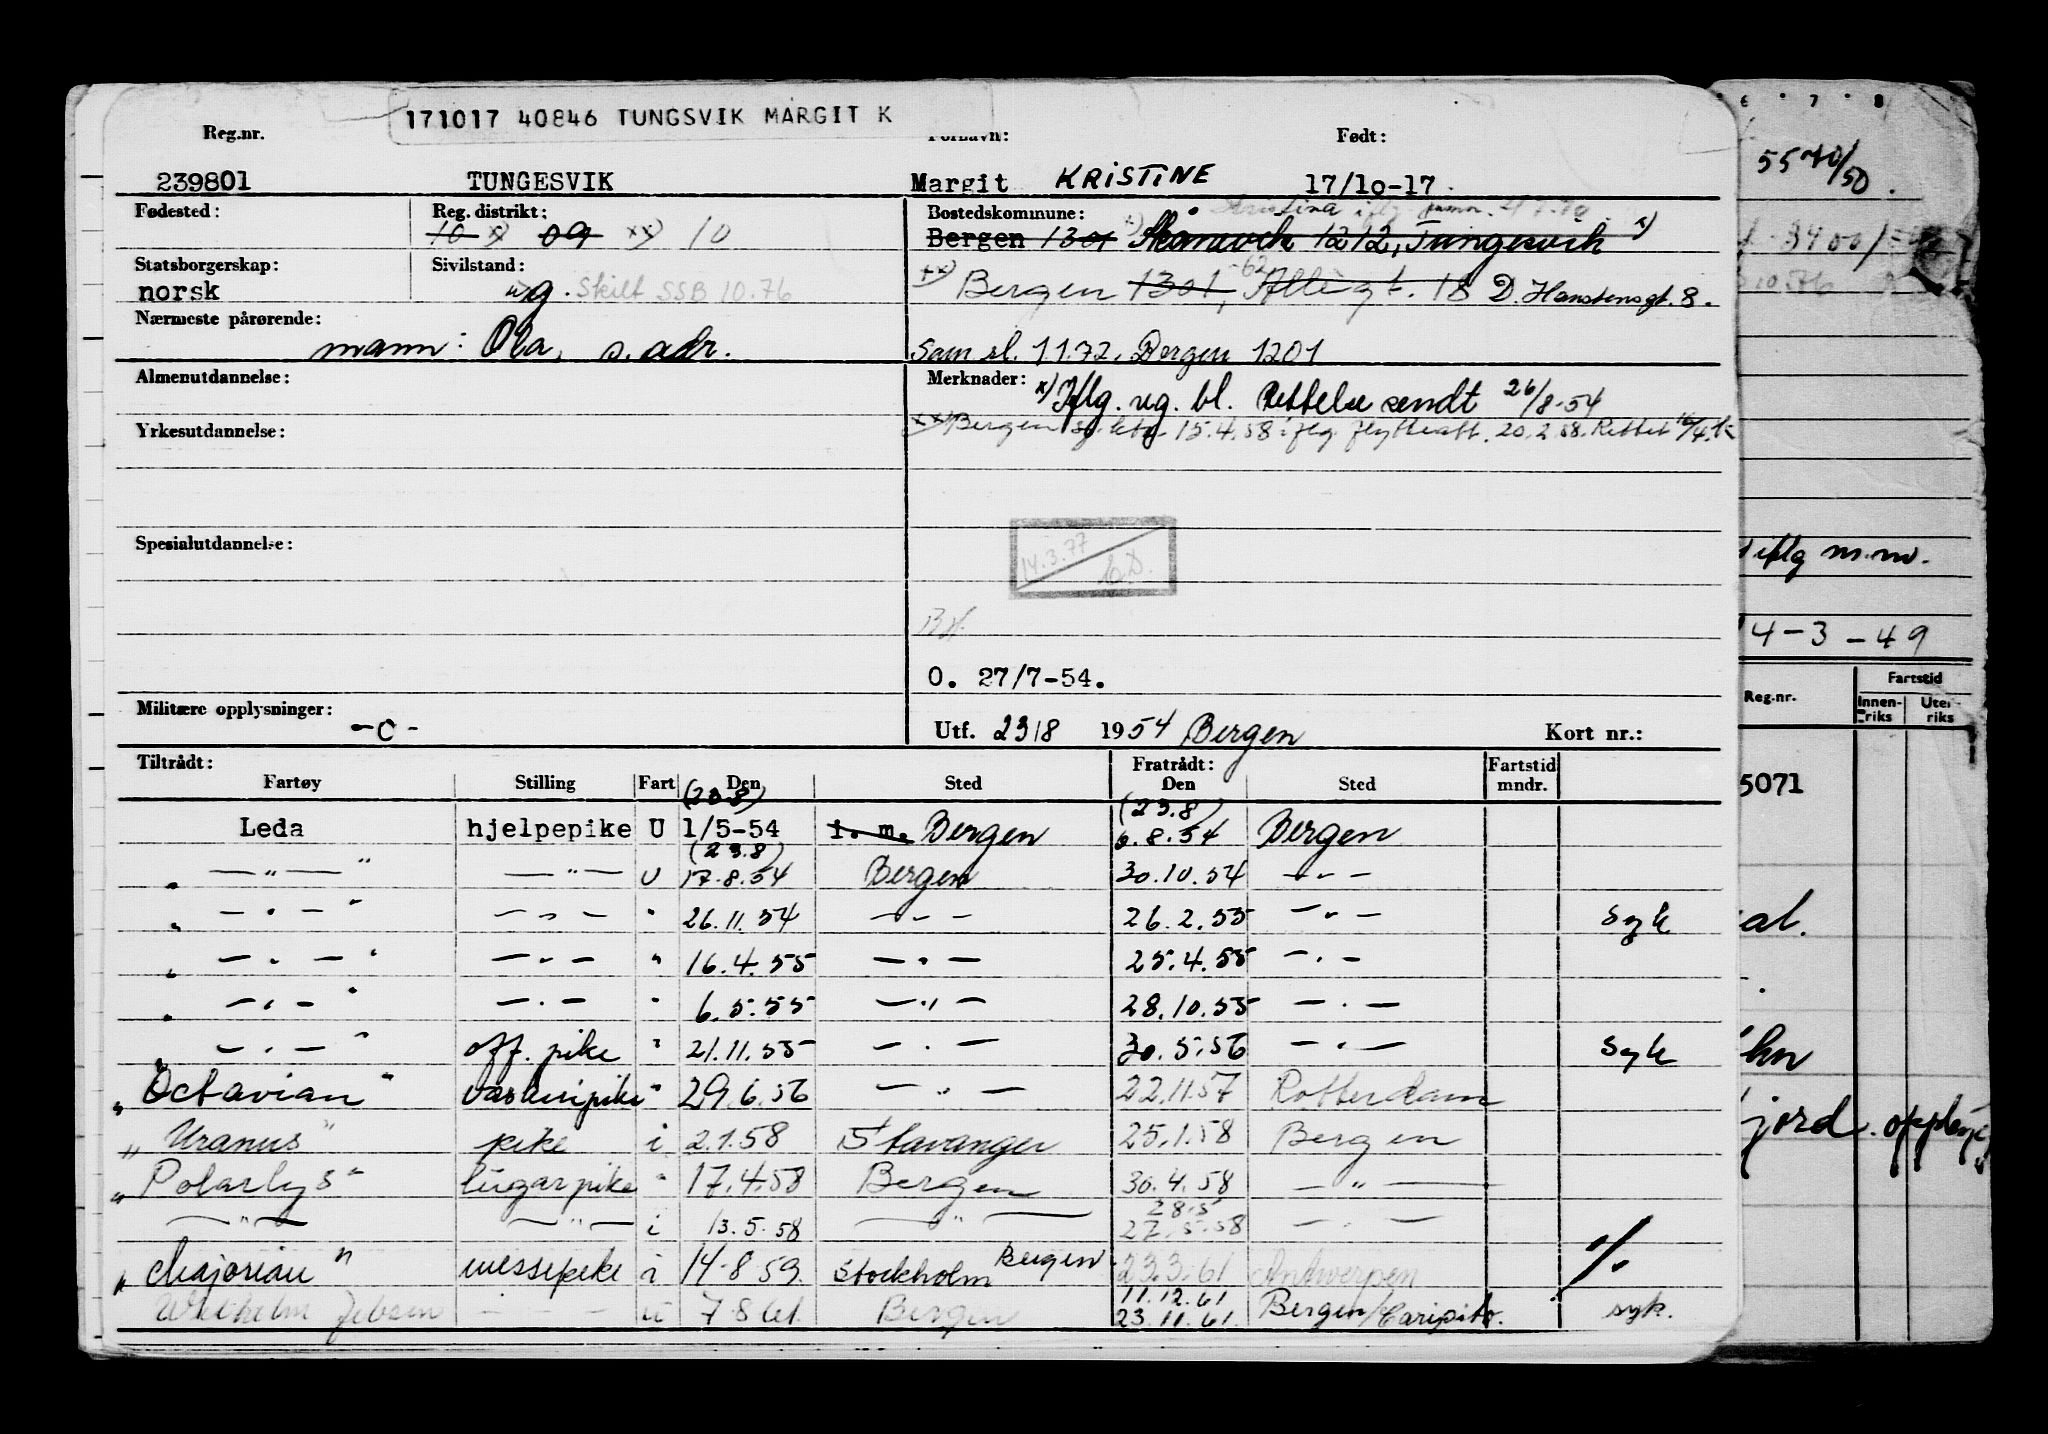 171017 40846 TUNGSVIK MARGIT K
Reg.nr. Fornavn: Født:
239801 TUNGESVIK Margit KRISTINE 17/10-17
Fødested: Reg. distrikt: Bostedskommune:
10 x) 09 xx) 10 Bergen 1301 Skånevik 1212, Tungesvik x)
Statsborgerskap: Sivilstand:
norsk g. Skilt SSB 10.76 xx) Bergen 1301, 18 D. Hanstensgt. 8.
Nærmeste pårørende:
mann: Ola, s. adr. Sam sl. 11.72, Bergen 1201
Almenutdannelse: Merknader: x) Iflg. reg. bl. Rettelse sendt 26/8-54
Yrkesutdannelse: xx) Bergen 15.4.58 iflg. flytteatt. 20.2.58. Rettet
Spesialutdannelse:
14.3.77
O. 27/7-54.
Militære opplysninger: -o- Utf. 23/8 1954 Bergen Kort nr.:
Tiltrådt: Fratrådt: Fartstid
Fartøy Stilling Fart Den Sted Den Sted mndr.
(23.8) (23.8)
Leda hjelpepike U 1/5-54 i. m. Bergen 6.8.54 Bergen
(23.8)
" — " — " — " — U 17.8.54 Bergen 30.10.54 - " -
" - " - " - " - " 26.11.54 - " - 26.2.55 - " - Syk
" - " - " - " - " 16.4.55 - " - 25.4.55 - " -
" - " - " - " - " 6.5.55 - " - 28.10.55 - " -
" - " - " off. pike " 21.11.55 - " - 30.5.56 - " - Syk
"Octavian" vaskeripike " 29.6.56 - " - 22.11.57 Rotterdam
"Uranus" pike i 2.1.58 Stavanger 25.1.58 Bergen
"Polarlys" lugarpike " 17.4.58 Bergen 30.4.58 - " -
28.5
- " - - " - i 13.5.58 - " - 27.5.58 - " -
"Majorian" messepike i 14.8.59 Stockholm Bergen 23.3.61 Antwerpen
11.12.61
Wilhelm Jebsen - - - u 7.8.61 Bergen 23.11.61 Bergen/Caripito. syk.
6 7 8
5540/50.
iflg m.m.
4-3-49
Reg.nr. Fartstid
Innen-riks Uten-riks
5071